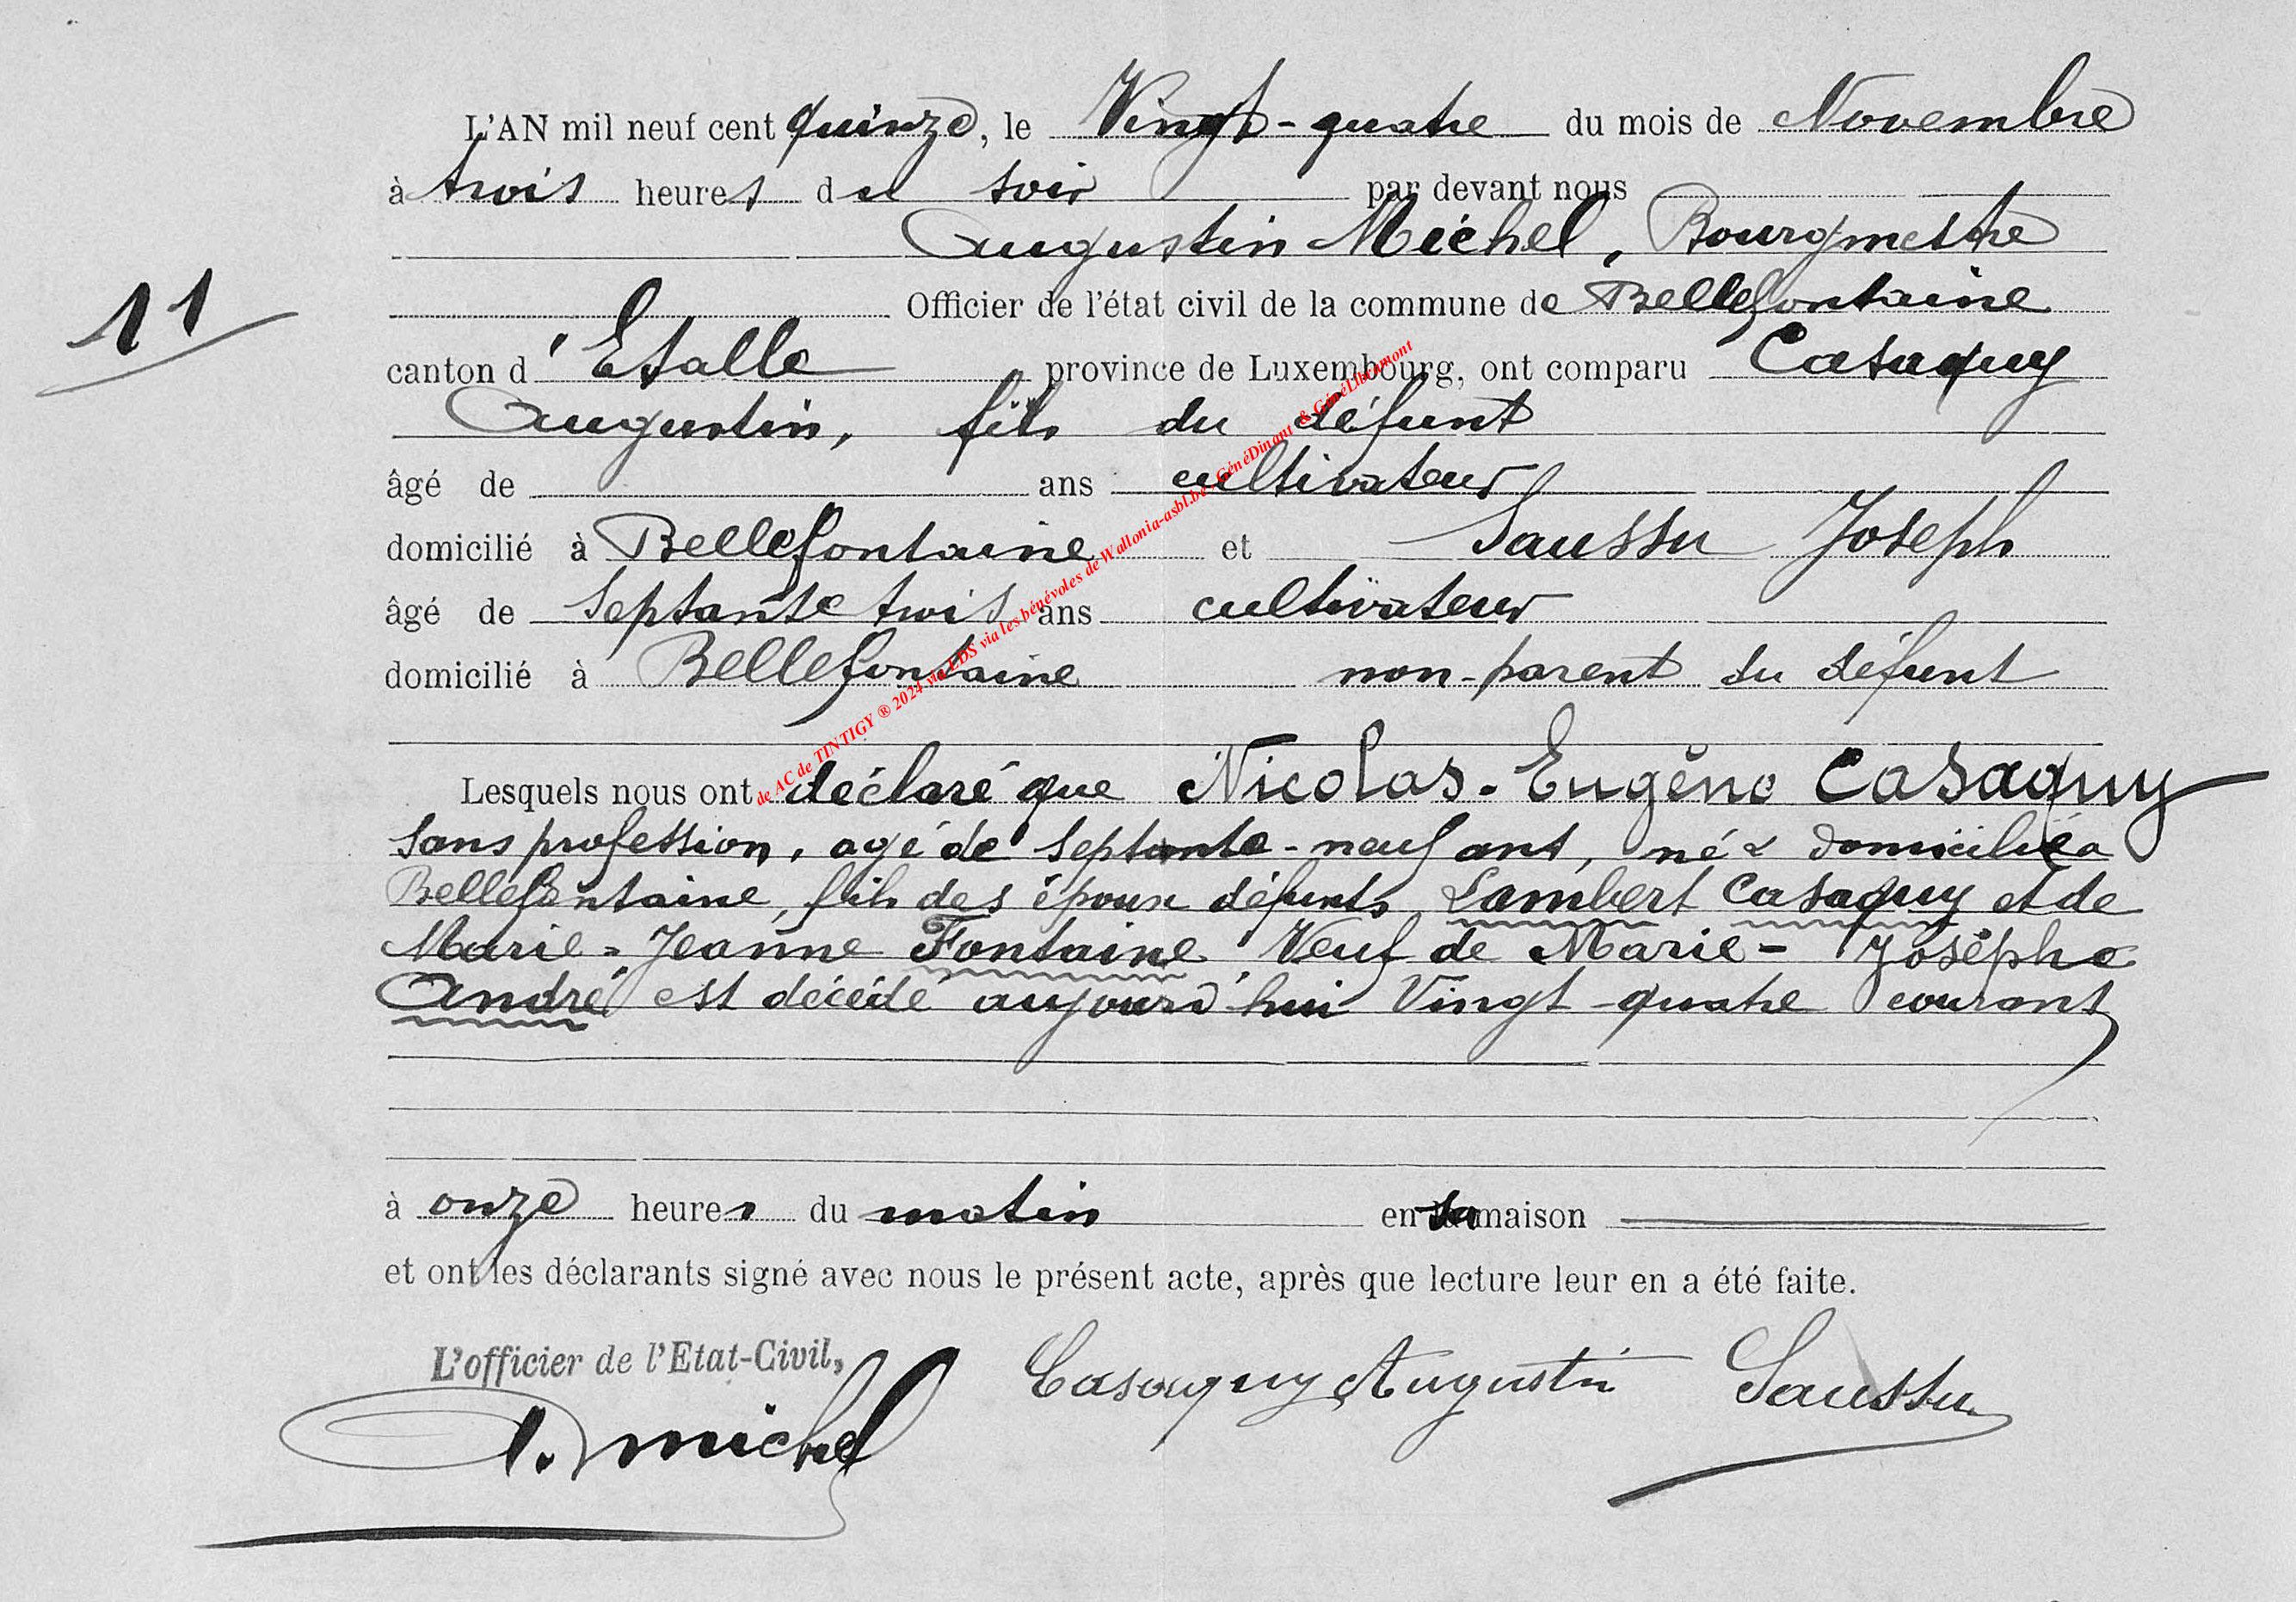 L'AN mil neuf cent quinze, le Vingt-quatre du mois de Novembre
à trois heures du soir par devant nous
Augustin Michel, Bourgmestre
11
Officier de l'état civil de la commune de Bellefontaine
canton d'Etalle province de Luxembourg, ont comparu Casaquy
Augustin, fils du défunt
âgé de ans cultivateur
domicilié à Bellefontaine et Saussu Joseph
âgé de septante trois ans cultivateur
domicilié à Bellefontaine non-parent du défunt
Lesquels nous ont déclaré que Nicolas-Eugène Casaquy
sans profession, agé de septante-neuf ans, né & domicilié à
Bellefontaine, fils des époux défunts Lambert Casaquy et de
Marie-Jeanne Fontaine, Veuf de Marie-Josèphe
André est décédé aujourd'hui Vingt-quatre courant
à onze heures du matin en sa maison
et ont les déclarants signé avec nous le présent acte, après que lecture leur en a été faite.
L'officier de l'Etat-Civil,
A. Michel Casaquy Augustin Saussu
de AC de TINTIGY ® 2024 via LDS via les bénévoles de Wallonia-asbl.be, GénéDinant & GénéLibramont